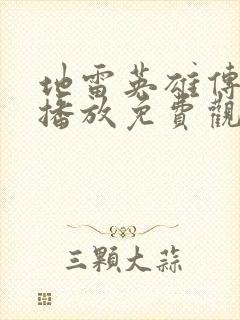 地雷英雄傳
播放免費觀
三顆大蒜